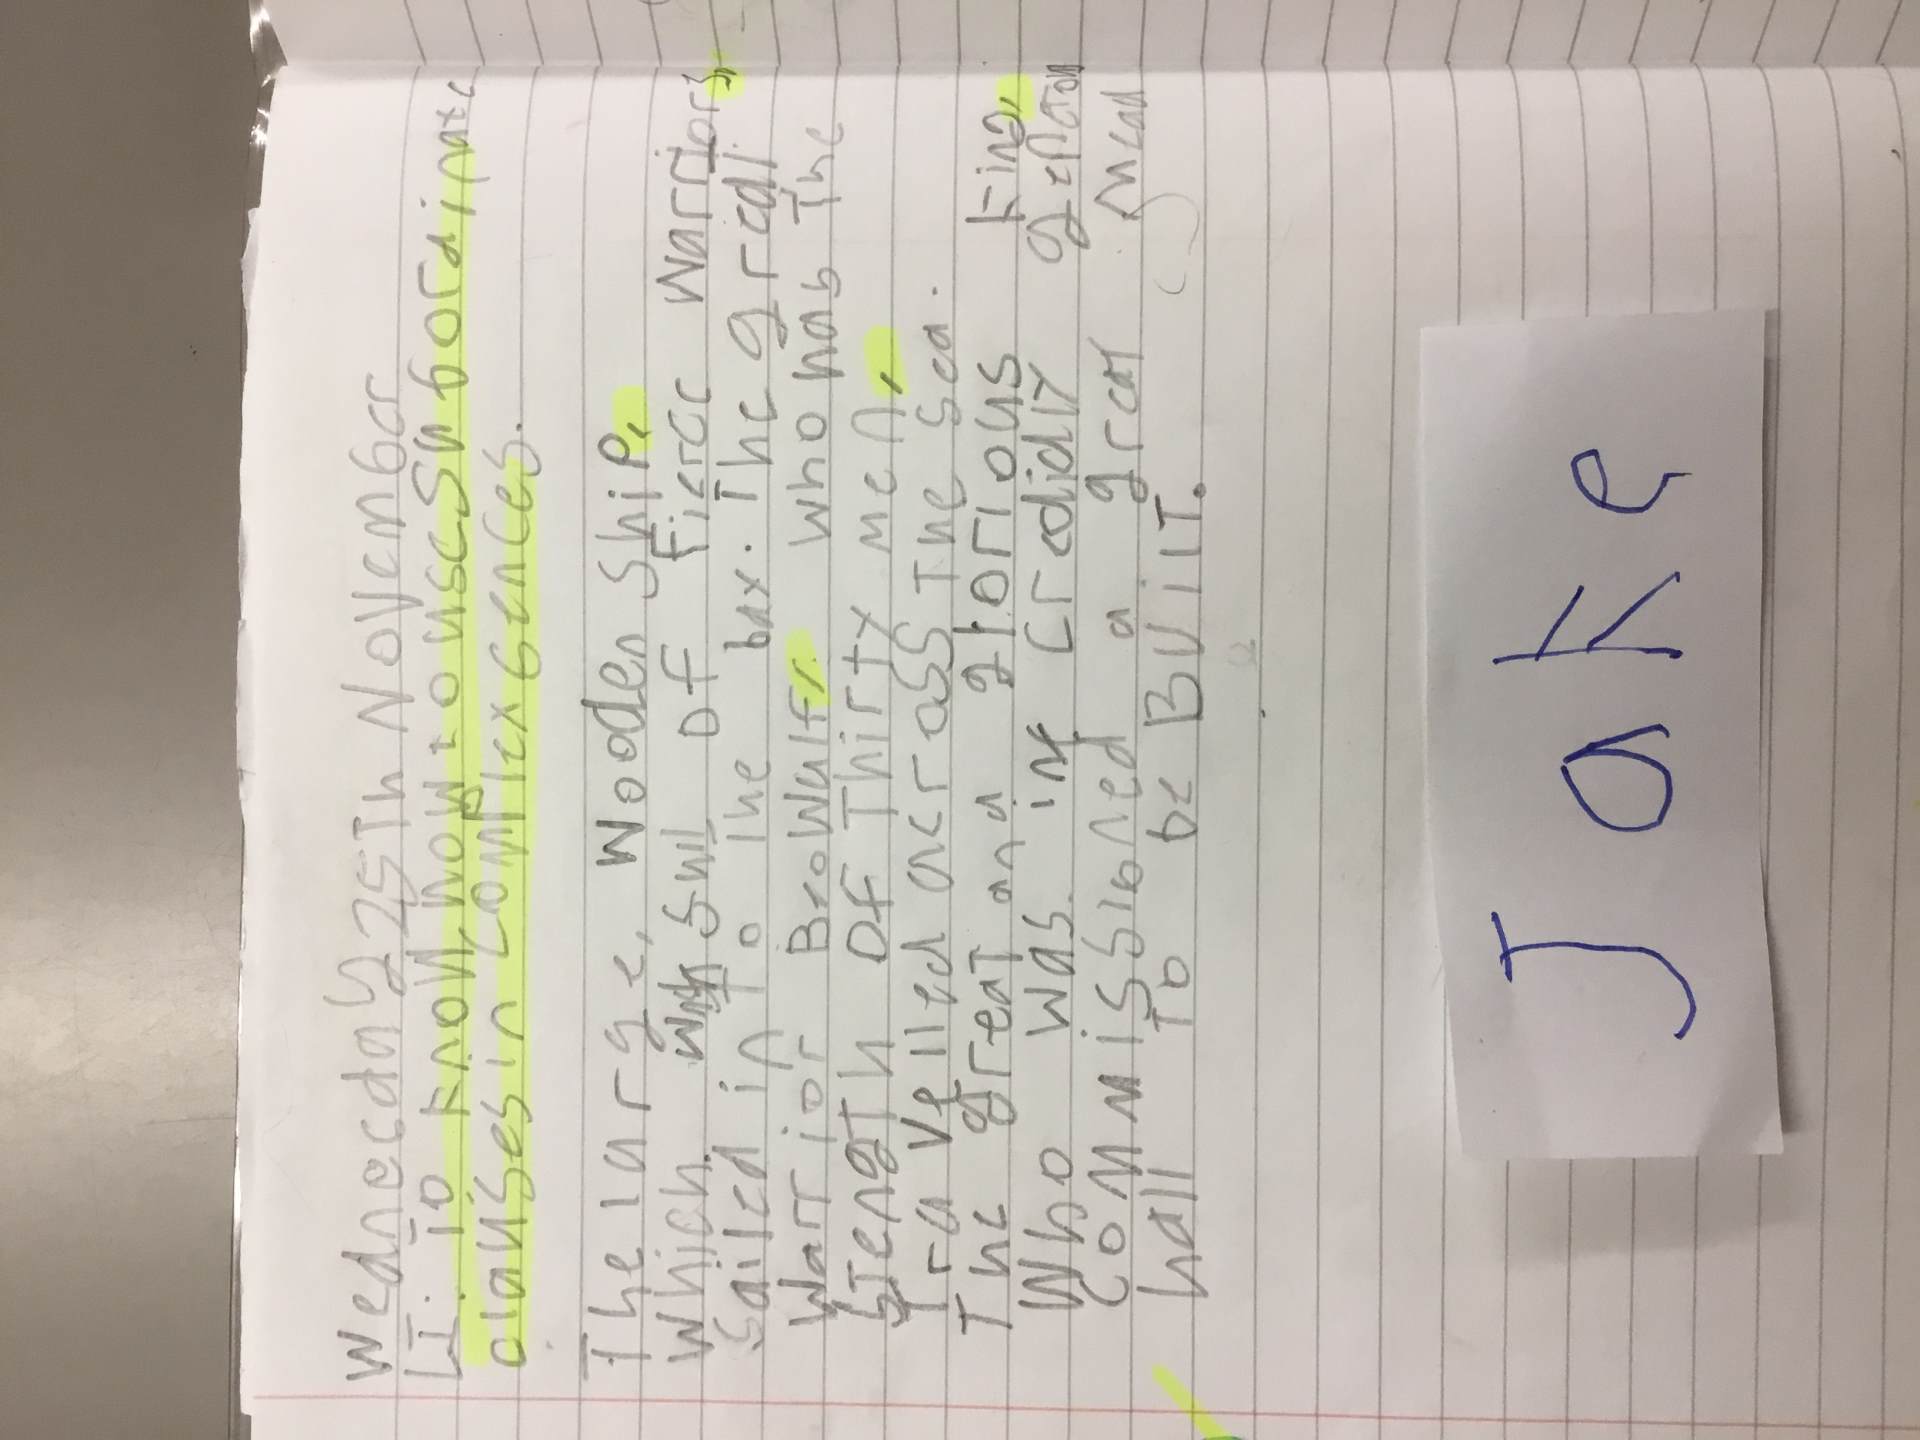 Wednecday 25Th November
LI: To Know how to use Subordinate
clauses in complex Sences.
The large, Wooden Ship,
which was Full OF Fierce warriors,
Sailed in To The bax. The greadt
warrior Beowulf, who hab The
STengTh OF Thirty men,
Travelled across The Sea.
The great and glorious King,
Who was in credidly generous
commissioned a great mead
hall To be BuilT.
Jake